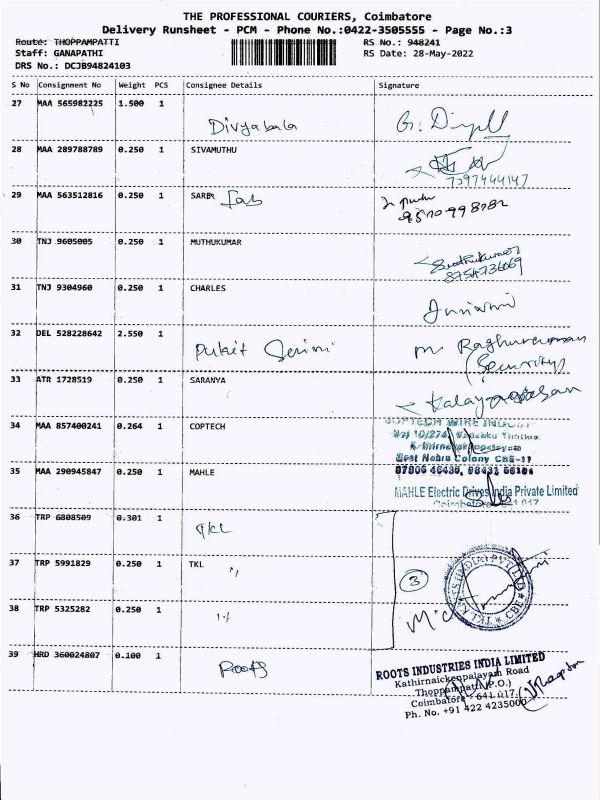 THE PROFESSIONAL COURIERS, Coimbatore
Delivery Runsheet - PCM - Phone No.:0422-3505555 - Page No.:3
Route: THOPPAMPATTI
RS No.: 948241
Staff: GANAPATHI
RS Date: 28-May-2022
DRS No.: DCJB94824103
S No Consignment No Weight PCS Consignee Details Signature
27 MAA 565982225 1.500 1 Divyabala
28 MAA 289788789 0.250 1 SIVAMUTHU
7397444147
29 MAA 563512816 0.250 1 SARBI
30 TNJ 9605005 0.250 1 MUTHUKUMAR
Muthukumar
8754736069
31 TNJ 9304960 0.250 1 CHARLES
32 DEL 528228642 2.550 1
Raghuraman
(Security)
33 ATR 1728519 0.250 1 SARANYA
34 MAA 857400241 0.264 1 COPTECH
COPTECH WIRE
West Nehru Colony CBE-11
35 MAA 290945847 0.250 1 MAHLE
MAHLE Electric Drives India Private Limited
36 TRP 6808509 0.301 1 TKL
37 TRP 5991829 0.250 1 TKL
3
38 TRP 5325282 0.250 1
39 HRD 360024807 0.100 1 Roots
ROOTS INDUSTRIES INDIA LIMITED
Kathirnaickenpalayam Road
Thoppampatti (P.O.)
Coimbatore - 641 017.
Ph. No. +91 422 4235000